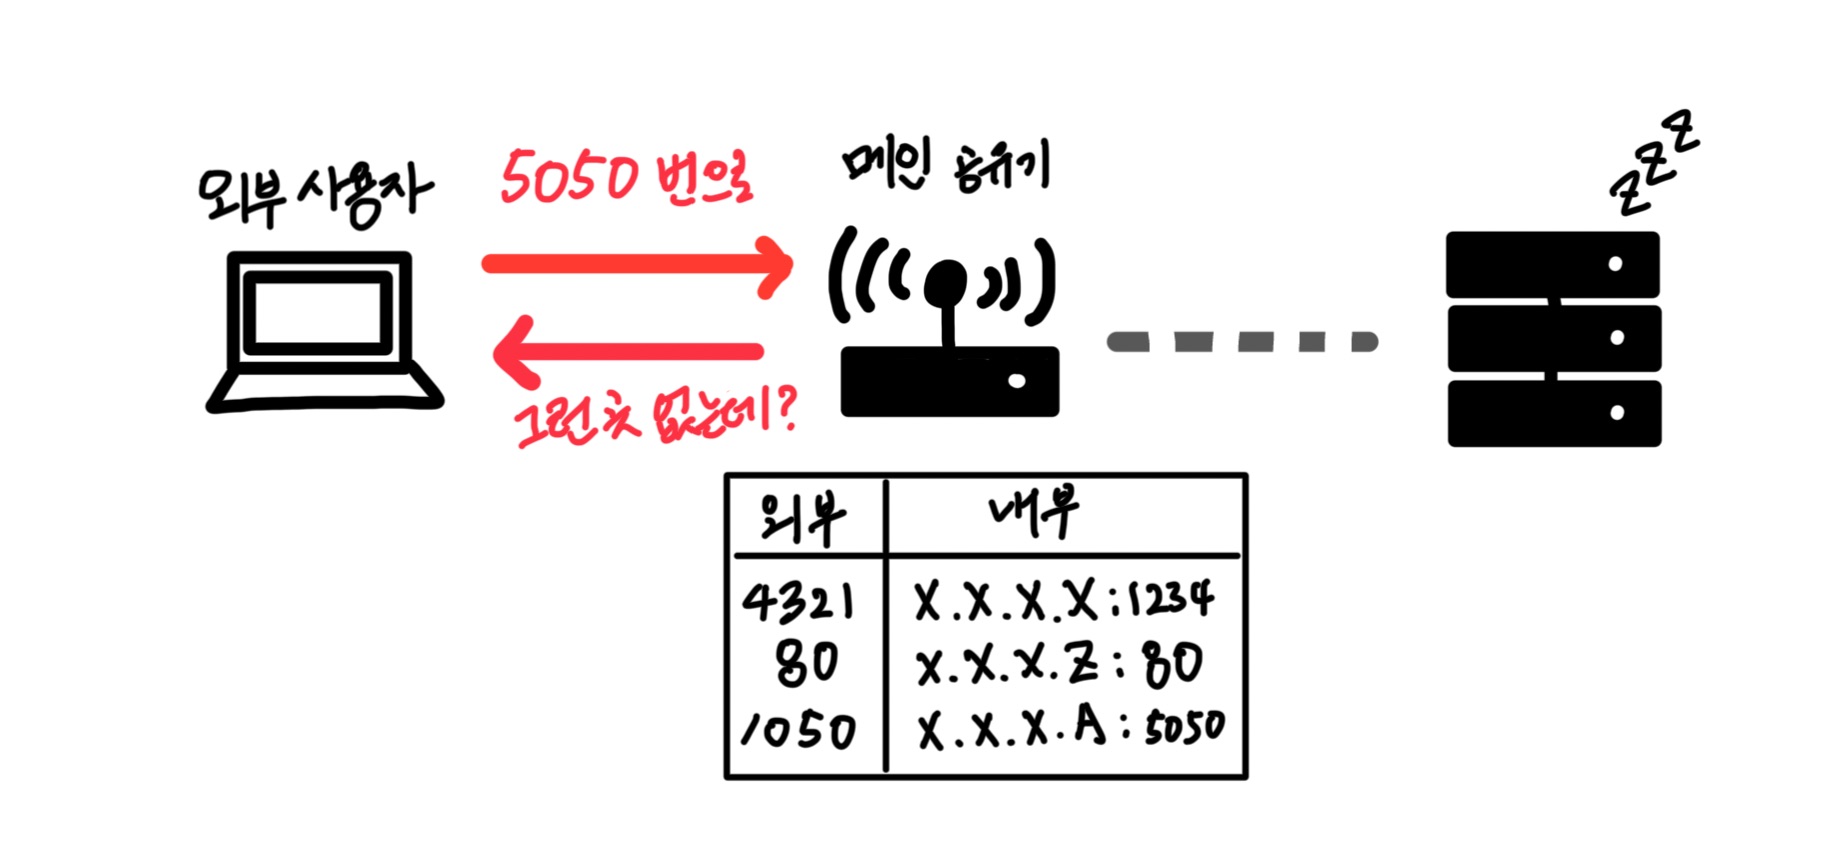 외부 사용자
5050 번으로
메인 공유기
zzz
그런 곳 없는데?
외부 내부
4321 X.X.X.X:1234
80 X.X.X.Z:80
1050 X.X.X.A:5050